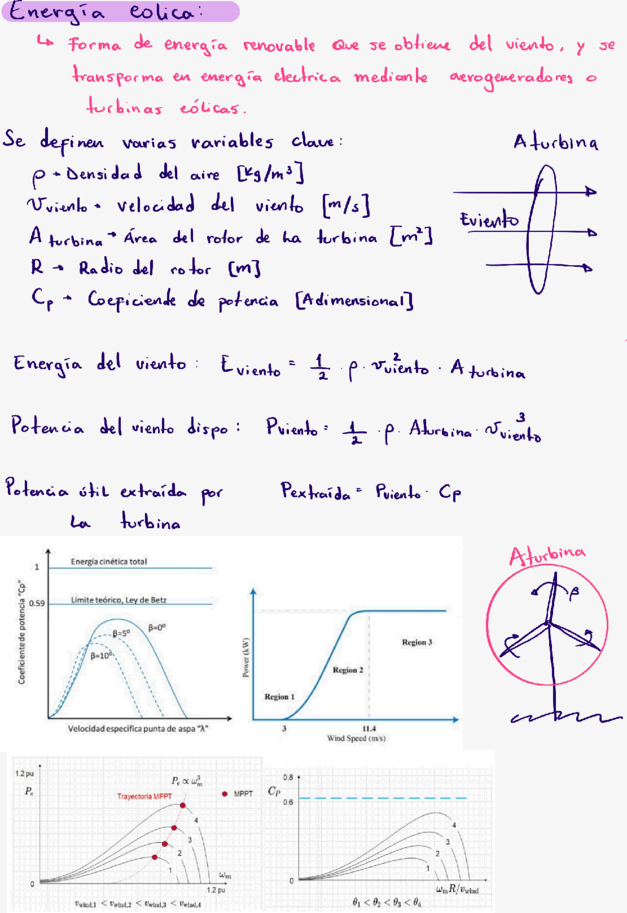 Energía eolica:
↳ Forma de energía renovable que se obtiene del viento, y se
transforma en energía electrica mediante aerogeneradores o
turbinas eólicas.
Se definen varias variables clave:
ρ → Densidad del aire [kg/m³]
Vviento → velocidad del viento [m/s]
A turbina → Área del rotor de la turbina [m²]
R → Radio del rotor [m]
Cp → Coeficiende de potencia [Adimensional]
Aturbina
Eviento
Energía del viento: Eviento = 1/2 · ρ · v²viento · A turbina
Potencia del viento dispo: Pviento = 1/2 · ρ · Aturbina · v³viento
Potencia útil extraída por
la turbina
Pextraída = Pviento · Cp
Coeficiente de potencia "Cp"
1
Energía cinética total
0.59
Límite teórico, Ley de Betz
β=0º
β=5º
β=10º
Velocidad especifica punta de aspa "λ"
Power (kW)
Region 1
Region 2
Region 3
3
11.4
Wind Speed (m/s)
Aturbina
β
1.2 pu
Pe
Trayectoria MPPT
Pe ∝ ω³m
MPPT
4
3
2
1
0
ωm
1.2 pu
vwind,1 < vwind,2 < vwind,3 < vwind,4
0.8
CP
0.6
4
3
2
1
0
ωmR/vwind
θ1 < θ2 < θ3 < θ4